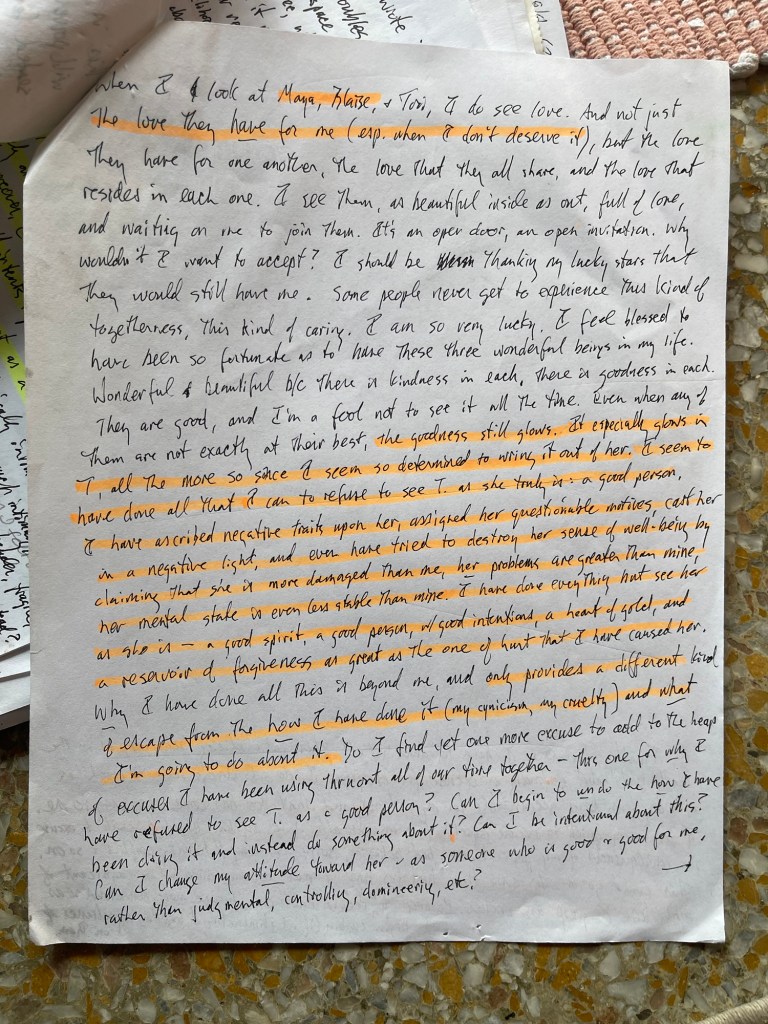 When I look at Maya, Blaise, + Tori, I do see love. And not just
the love they have for me (esp. when I don't deserve it), but the love
they have for one another, the love that they all share, and the love that
resides in each one. I see them, as beautiful inside as out, full of love,
and waiting on me to join them. It's an open door, an open invitation. Why
wouldn't I want to accept? I should be thanking my lucky stars that
they would still have me. Some people never get to experience this kind of
togetherness, this kind of caring. I am so very lucky. I feel blessed to
have been so fortunate as to have these three wonderful beings in my life.
Wonderful & beautiful b/c there is kindness in each, there is goodness in each.
They are good, and I'm a fool not to see it all the time. Even when any of
them are not exactly at their best, the goodness still glows. It especially glows in
T, all the more so since I seem so determined to wring it out of her. I seem to
have done all that I can to refuse to see T. as she truly is: a good person.
I have ascribed negative traits upon her, assigned her questionable motives, cast her
in a negative light, and even have tried to destroy her sense of well-being by
claiming that she is more damaged than me, her problems are greater than mine,
her mental state is even less stable than mine. I have done everything but see her
as she is — a good spirit, a good person, w/ good intentions, a heart of gold, and
a reservoir of forgiveness as great as the one of hurt that I have caused her.
Why I have done all this is beyond me, and only provides a different kind
of escape from the how I have done it (my cynicism, my cruelty) and what
I'm going to do about it. Do I find yet one more excuse to add to the heap
of excuses I have been using thruout all of our time together - this one for why I
have refused to see T. as a good person? Can I begin to undo the how I have
been doing it and instead do something about it? Can I be intentional about this?
Can I change my attitude toward her - as someone who is good & good for me,
rather than judgmental, controlling, domineering, etc.? →